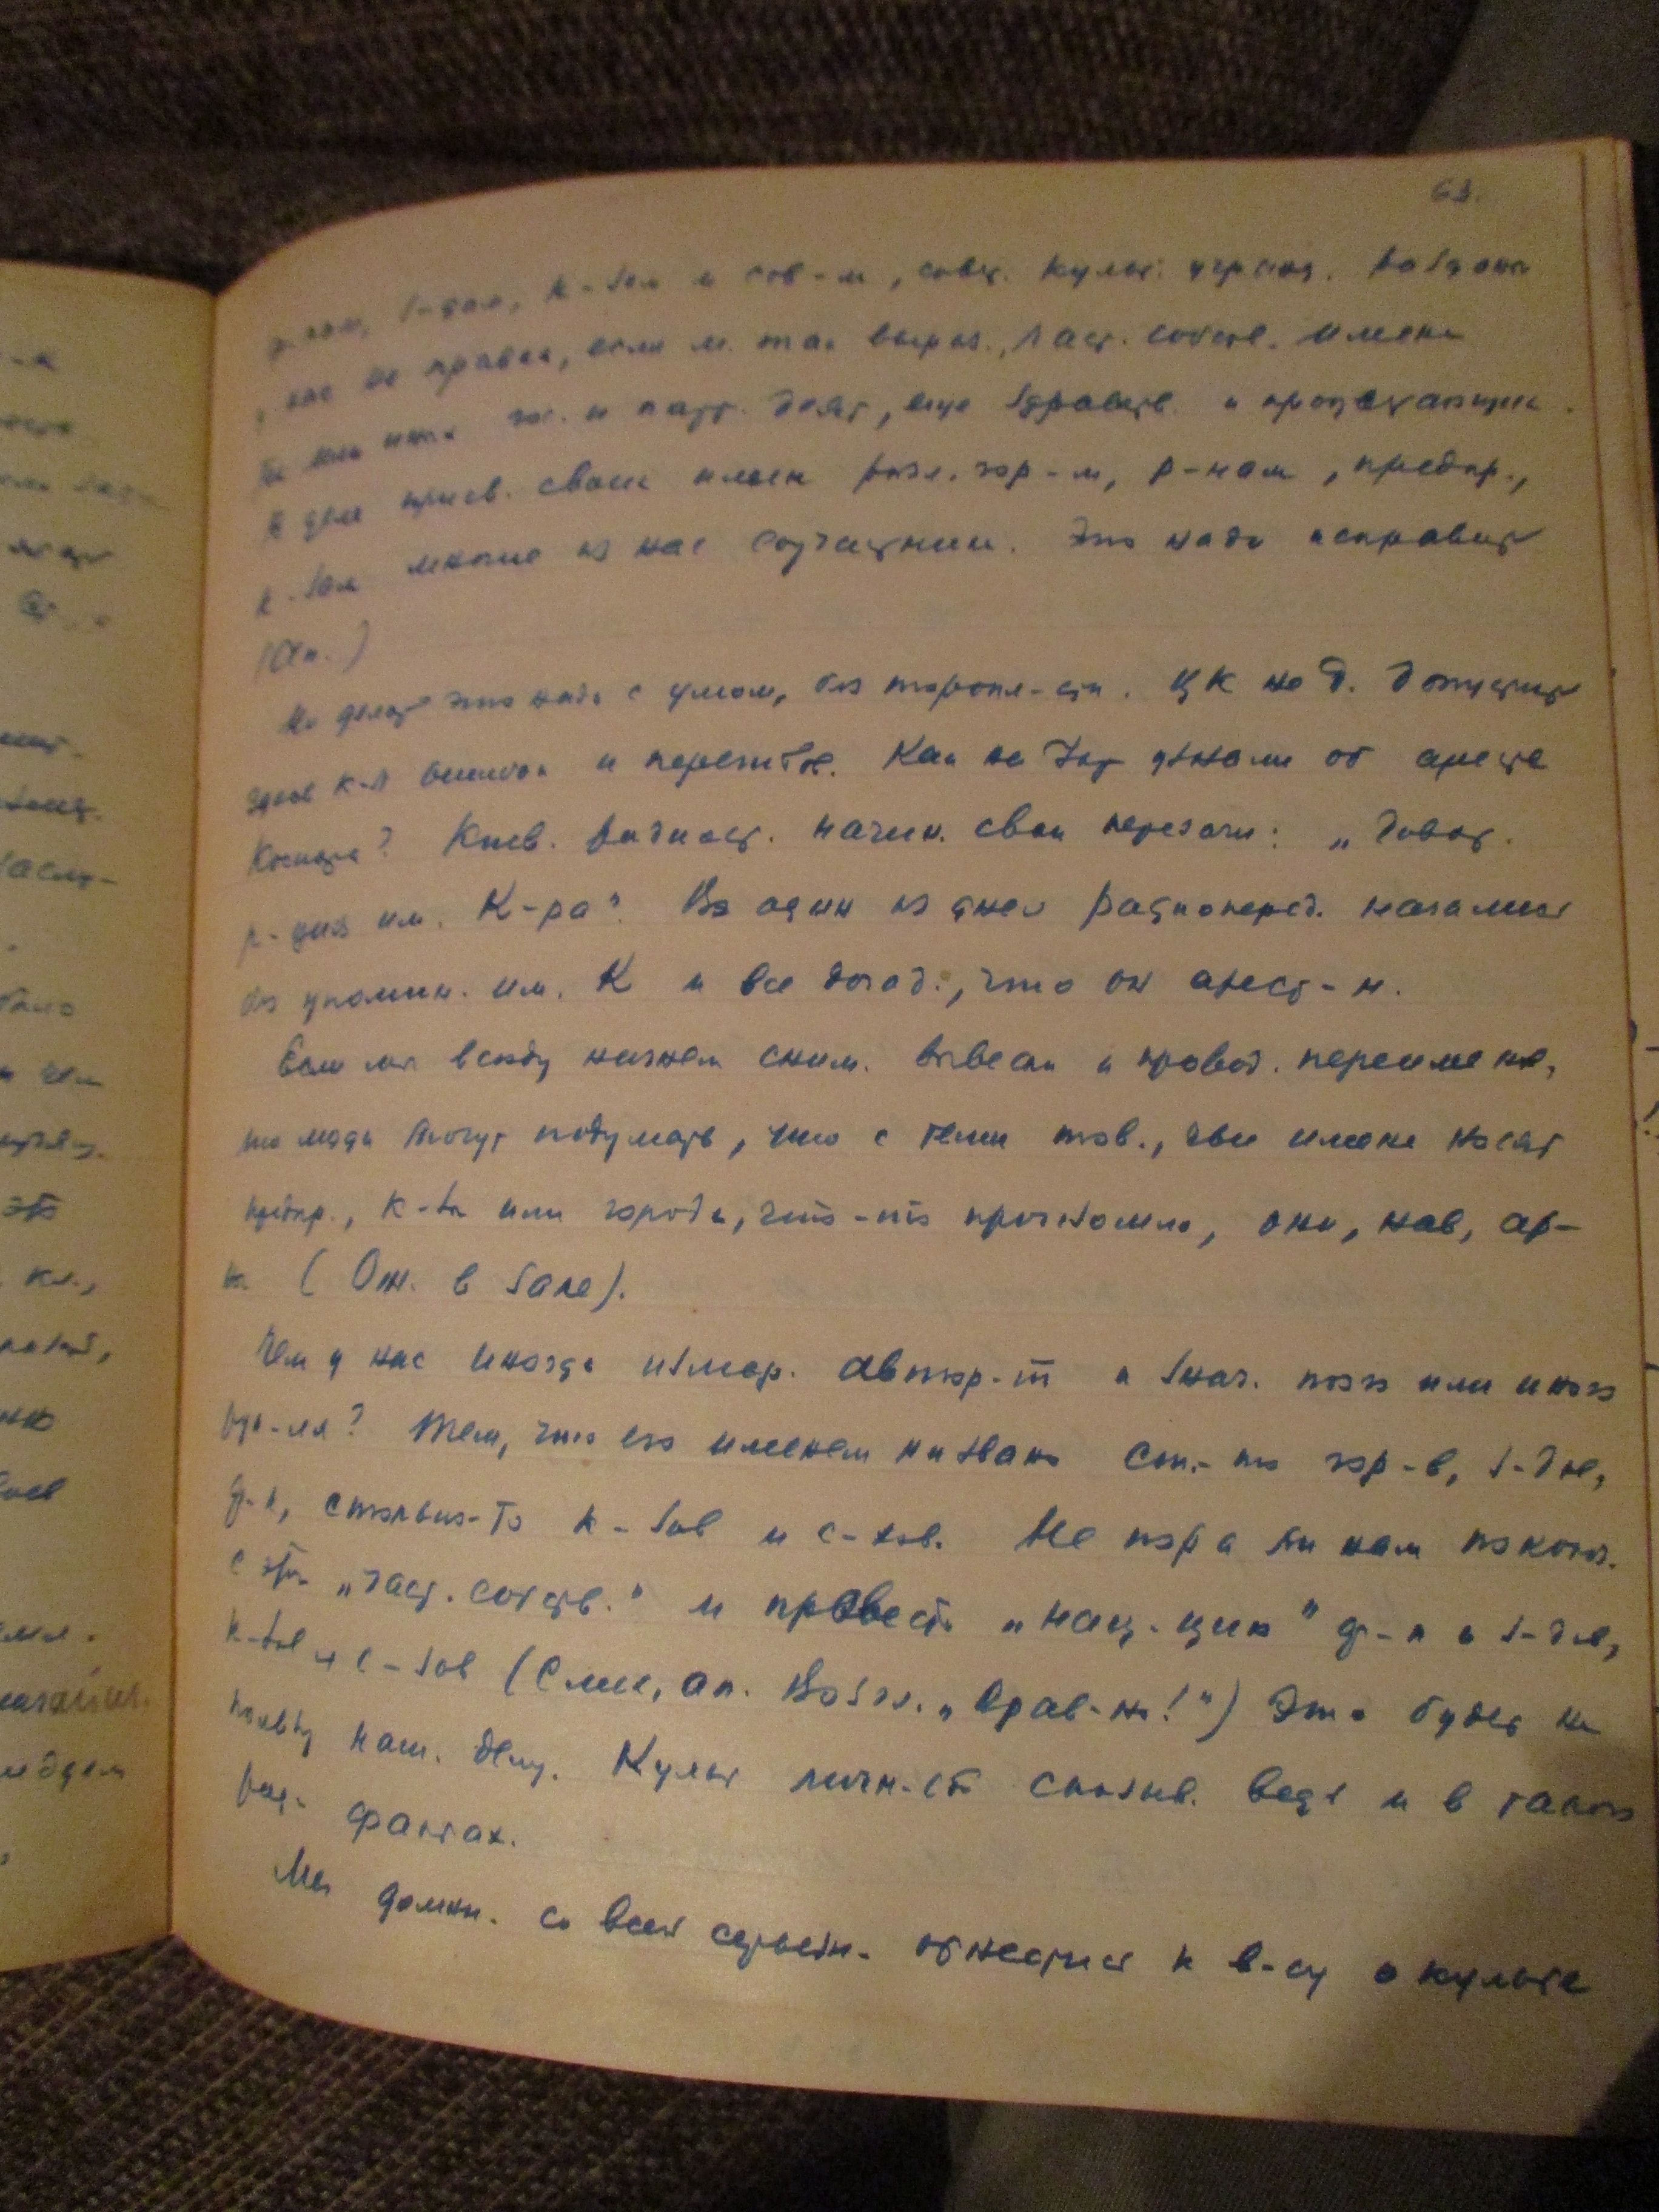 63.
к-зам и сов-м, совх. культ. учрежд. Раздана
нас не правда, если м. так выраз., част. собств. имена
гос. и парт. деят, еще здравств. и процветающих.
В деле присв. своих имен разл. гор-м, р-нам, предпр.,
к-зам многие из нас соучастники. Это надо исправить
(Ап.)
Но делать это надо с умом, без торопл-сти. ЦК не д. допустить
здесь к-л ошибок и перегибов. Как на Укр узнали об аресте
Косиора? Киев. радиост. начин. свои передачи: „Говор.
р-дио им. К-ра". В один из дней радиоперед. начались
без упомин. им. К и все догад., что он арест-н.
Если мы всюду начнем сним. вывески и провод. переимен,
то люди могут подумать, что с теми тов., чьи имена носят
предпр., к-зы или города, что-то произошло, они, нав, ар-
ны (Ож. в зале).
Чем у нас иногда измер. автор-т и знач. того или иного
рук-ля? Тем, что его именем названо стол.-то гор-в, з-дов,
ф-к, столько-то к-зов и с-зов. Не пора ли нам поконч.
с этой „част. собств." и провести „нац-цию" ф-к и з-дов,
к-зов и с-зов (Смех, ап. Возгл. „Прав-но!") Это будет на
пользу наш. делу. Культ личн-сти сказыв. ведь и в такого
рода фактах.
Мы должн. со всей серьезн. отнестись к в-су о культе